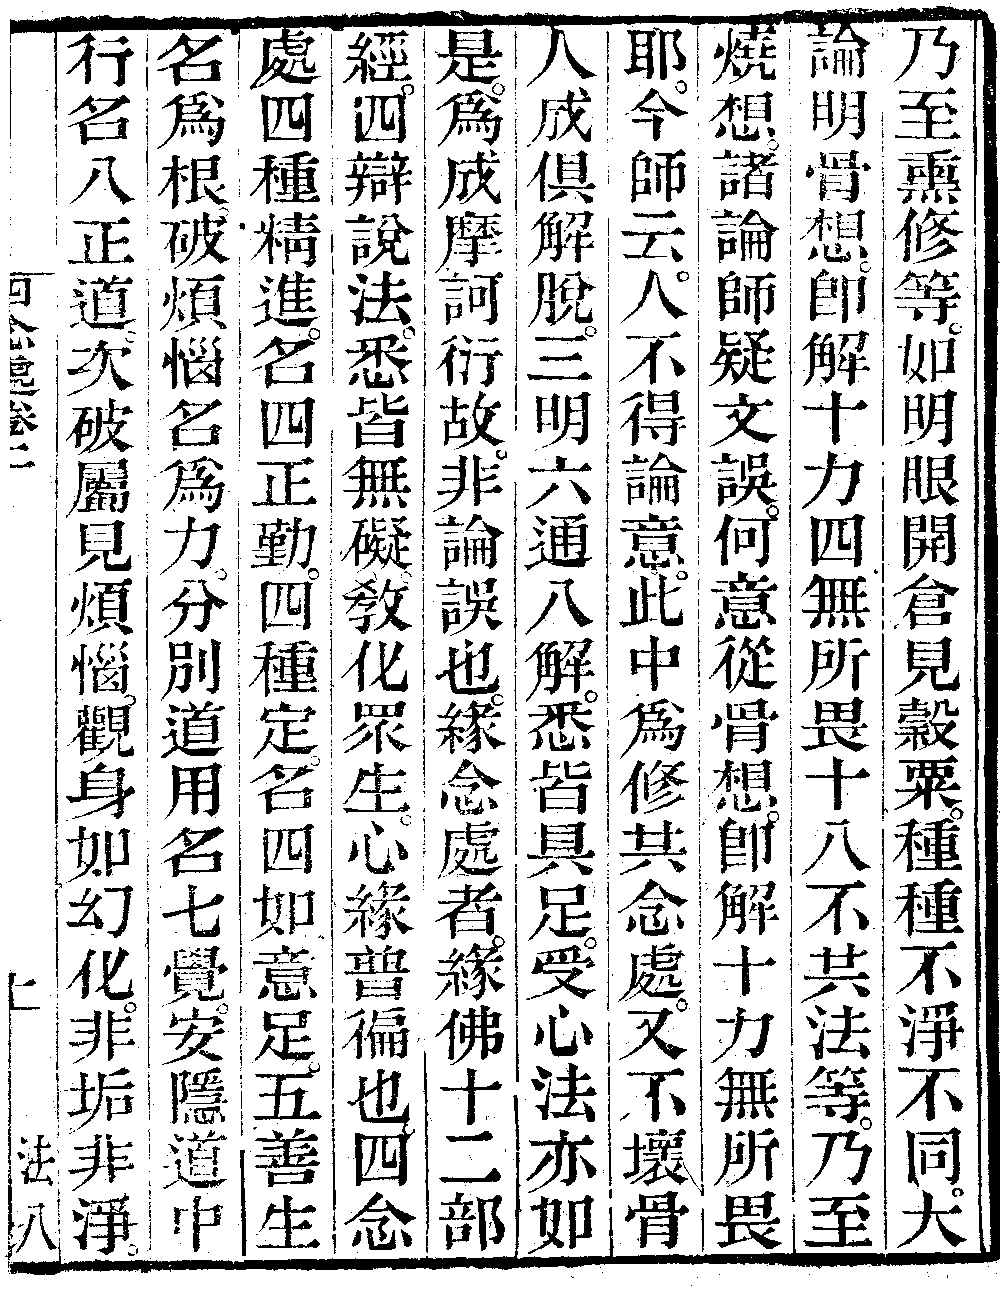 乃至熏修等。如明眼開倉見穀粟。種種不淨不同。大
論明骨想。卽解十力四無所畏十八不共法等。乃至
燒想。諸論師疑文誤。何意從骨想。卽解十力無所畏
耶。今師云。人不得論意。此中爲修共念處。又不壞骨
人成俱解脫。三明六通八解。悉皆具足。受心法亦如
是。爲成摩訶衍故。非論誤也。緣念處者。緣佛十二部
經。四辯說法。悉皆無礙。敎化眾生。心緣普徧也。四念
處四種精進。名四正勤。四種定。名四如意足。五善生
名爲根。破煩惱名爲力。分別道用名七覺。安隱道中
行名八正道。次破屬見煩惱。觀身如幻化。非垢非淨。
四念處卷二 十一 法八